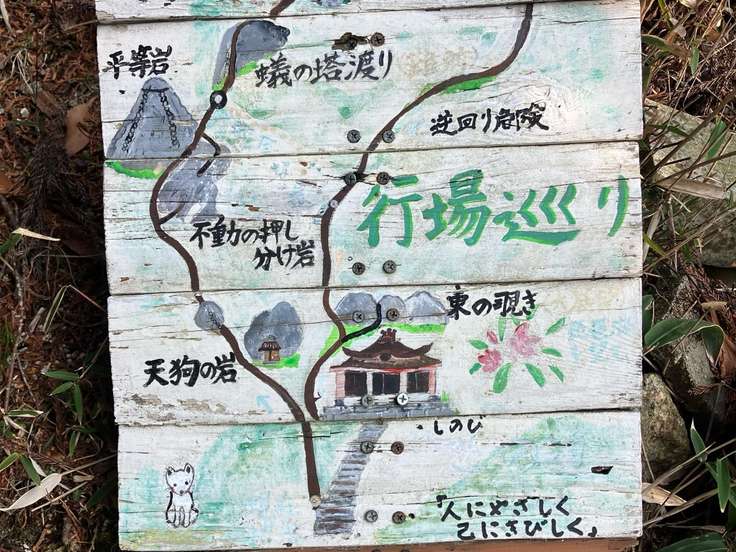 平等岩
蟻の塔渡り
逆回り危険
行場巡り
不動の押し
分け岩
東の覗き
天狗の岩
しのび
「人にやさしく
己にきびしく」